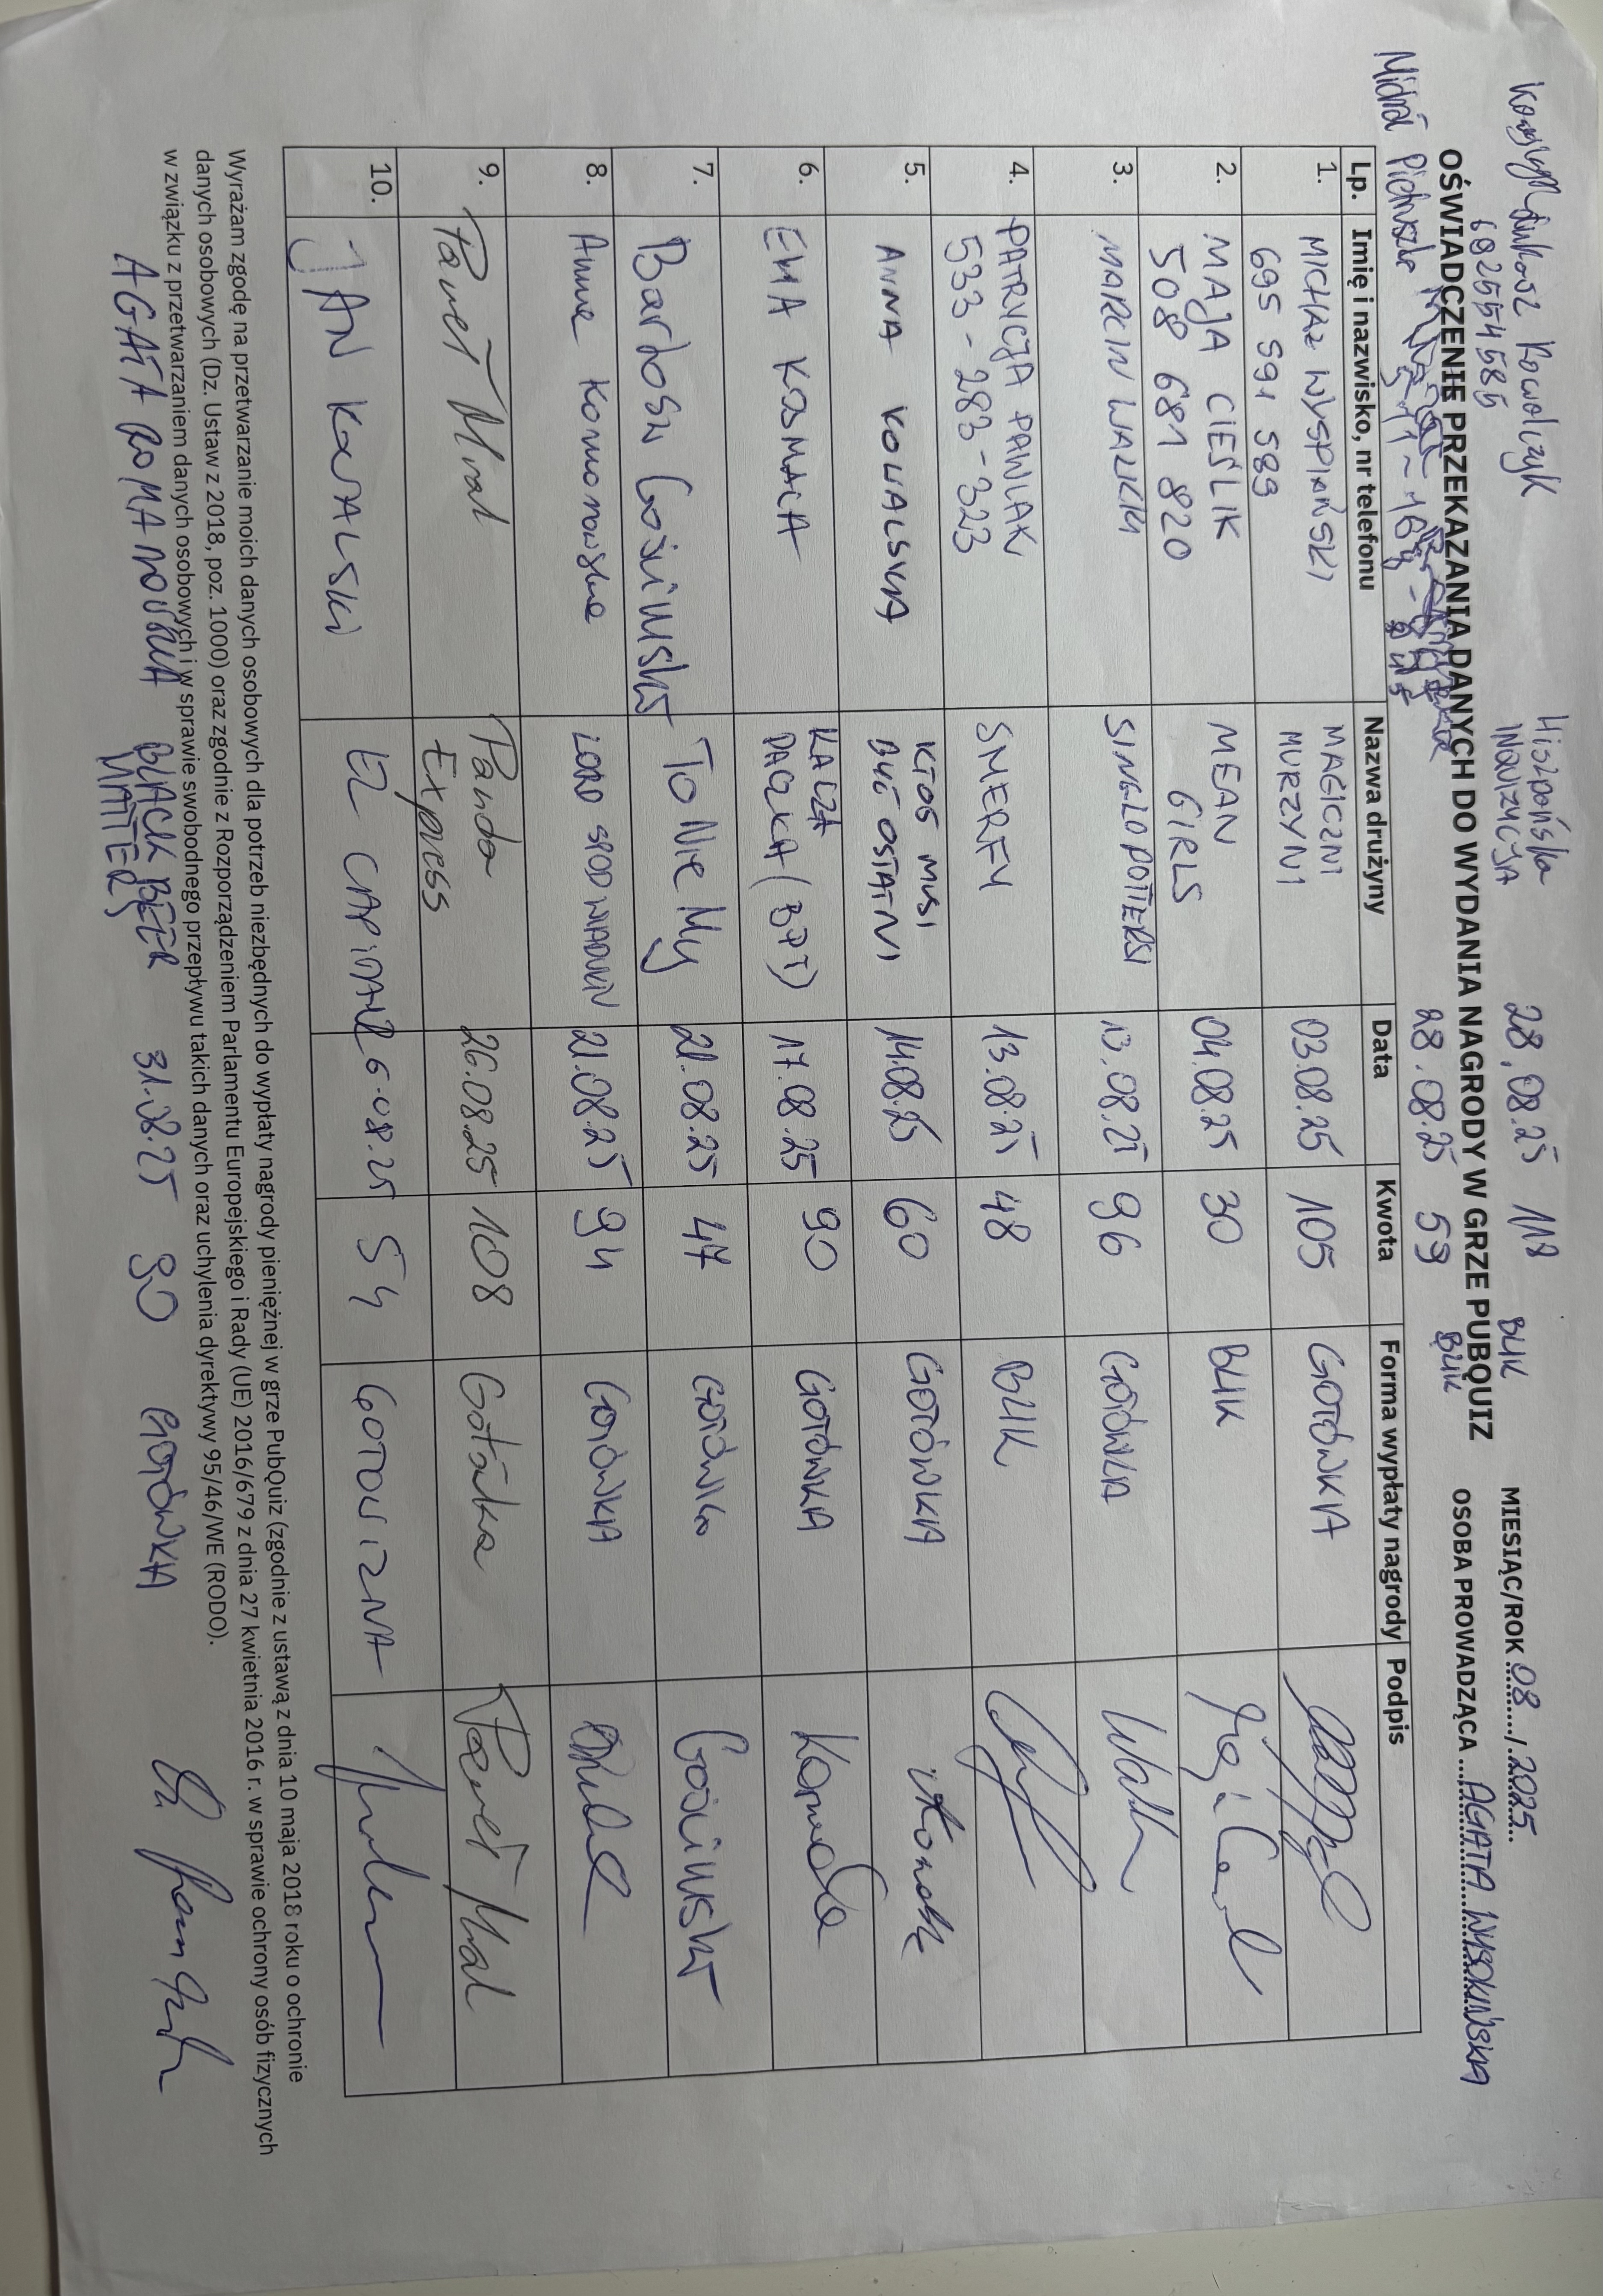 Łukasz Kowalczyk Hiszpańska INQUIZYCJA 28.08.25 118 BLIK
692554585
MIESIĄC/ROK 08/2025
OŚWIADCZENIE PRZEKAZANIA DANYCH DO WYDANIA NAGRODY W GRZE PUBQUIZ
OSOBA PROWADZĄCA AGATA WYSOKIŃSKA
28.08.25 59 BLIK
Lp. Imię i nazwisko, nr telefonu Nazwa drużyny Data Kwota Forma wypłaty nagrody Podpis
1. MICHAŁ WYSPIAŃSKI MAGICZNI 03.08.25 105 GOTÓWKA
695 591 589 MURZYNI
2. MAJA CIEŚLIK MEAN 04.08.25 30 BLIK
508 681 820 GIRLS
3. MARCIN WAZKKI SINGLOPOTTERSI 13.08.25 96 GOTÓWKA
4. PATRYCJA PAWLAK SMERFY 13.08.25 48 BLIK
533-283-323
5. ANNA KOWALSKA KTOŚ MUSI 14.08.25 60 GOTÓWKA
BYĆ OSTATNI
6. EMA KOSMALA KACZA 17.08.25 90 GOTÓWKA
PACZKA (BPT)
7. Bartosz Gosiński To Nie My 21.08.25 47 GOTÓWKA Gosiński
8. Anna Komorowska LORD SPOD WIADUKTU 21.08.25 94 GOTÓWKA
9. Paweł Mral Panda 26.08.25 108 Gotówka Paweł Mral
Express
10. JAN KOWALSKI EL CAPITANO 26.08.25 54 GOTOWIZNA
Wyrażam zgodę na przetwarzanie moich danych osobowych dla potrzeb niezbędnych do wypłaty nagrody pieniężnej w grze PubQuiz (zgodnie z ustawą z dnia 10 maja 2018 roku o ochronie
danych osobowych (Dz. Ustaw z 2018, poz. 1000) oraz zgodnie z Rozporządzeniem Parlamentu Europejskiego i Rady (UE) 2016/679 z dnia 27 kwietnia 2016 r. w sprawie ochrony osób fizycznych
w związku z przetwarzaniem danych osobowych i w sprawie swobodnego przepływu takich danych oraz uchylenia dyrektywy 95/46/WE (RODO).
AGATA ROMANOWSKA BLACK BEER 31.08.25 90 GOTÓWKA
MATTERS